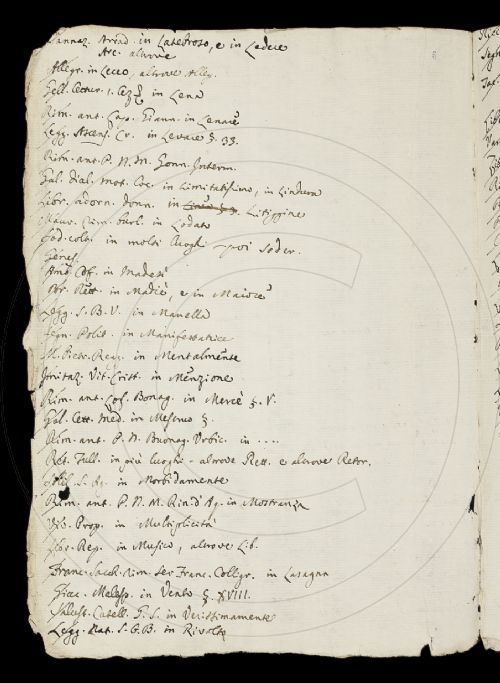 Sannaz. Arcad. in Latebroso, e in Ledere
Arc. altrove
Allegr. in Lecco, altrove Alleg.
Gell. lettur. 1. lez. in Lena
Rim. ant. in Lenare
Legg. Ascens. Cr. in Levare §. 33.
Rim. ant. P. N. M. Gonn. Interm.
Gal. dial. mot. loc. in Limitatissimo, in Lindura
Libr. adorn. donn. in Litiggine
Maur. rim. burl. in Lodato
Sod. colt. in molti luoghi poi Soder.
Genes.
Amb. Cof. in Madesì
Br. Rett. in Madiè, e in Maiore
Legg. S. B. V. in Manella
Segn. Polit. in Manifestatrice
M. Pietr. Reg. in Mentalmente
Imitaz. Vit. Crist. in Menzione
Rim. ant. Bonag. in Mercè §. V.
Gal. lett. Med. in Mesmo §.
Rim. ant. P. N. Buonag. Urbic. in ....
Ret. Tull. in più luoghi - altrove Rett. e altrove Retor.
S. Ag. in Morbidamente
Rim. ant. P. N. M. Rin. d' Aq. in Mostranza
Prop. in Multiplicità
Rep. in Musico, altrove Lib.
Franc. Sacch. Rim. Ser Franc. Collgr. in Lasagna
Giac. Malesp. in Vento §. XVIII.
Salust. Catell. G. S. in Verissimamente
Legg. Nat. S. G. B. in Rivolto